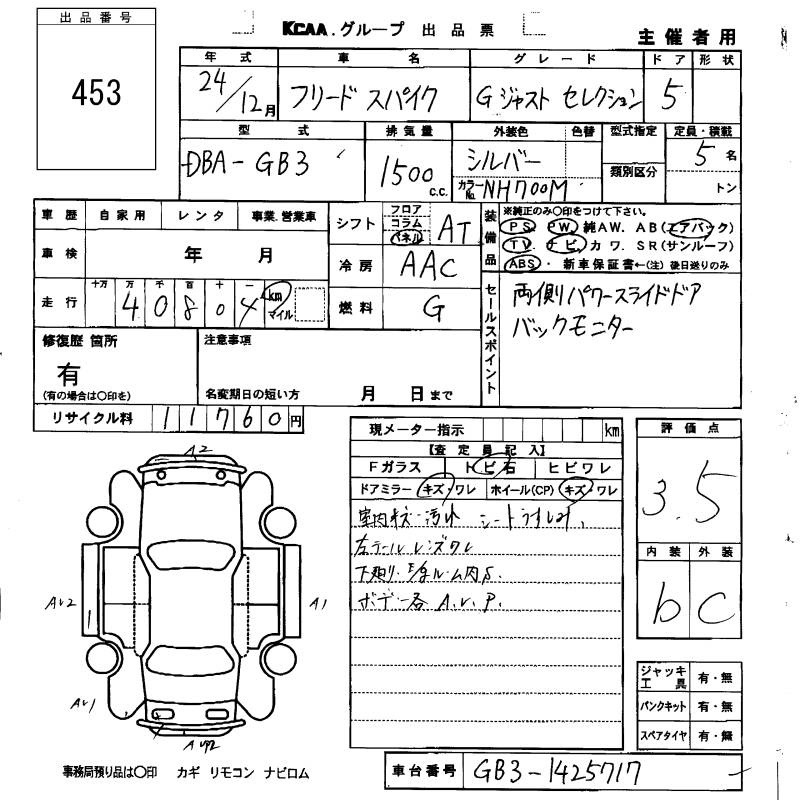 出品番号
453
KCAA.グループ 出品票
主催者用
年式 車名 グレード ドア 形状
24/12月 フリード スパイク G ジャスト セレクション 5
型式 排気量 外装色 色替 型式指定 定員・積載
DBA-GB3 1500c.c. シルバー カラーNo. NH700M 類別区分 5名 トン
車歴 自家用 レンタ 事業.営業車
車検 年 月
走行 十万 万 千 百 十 一
4 0 8 0 4 km マイル
シフト フロア コラム パネル AT
冷房 AAC
燃料 G
装備品
※純正のみ〇印をつけて下さい。
PS. PW. 純AW. AB(エアバック)
TV. ナビ カワ. SR(サンルーフ)
ABS・ 新車保証書←(注) 後日送りのみ
セールスポイント
両側パワースライドドア
バックモニター
修復歴 箇所
有
(有の場合は〇印を)
注意事項
名変期日の短い方 月 日まで
リサイクル料 11760円
現メーター指示 km
【査定員記入】
Fガラス トビ石 ヒビワレ
ドアミラー キズ・ワレ ホイール(CP) キズ・ワレ
室内キズ・汚れ シートうすしみ.
左テールレンズワレ
ボデー各 A.U.P.
評価点
3.5
内装 外装
b C
ジャッキ工具 有・無
パンクキット 有・無
スペアタイヤ 有・無
A2
AU2
A1
AU1
事務局預り品は〇印 カギ リモコン ナビロム
車台番号 GB3-1425717